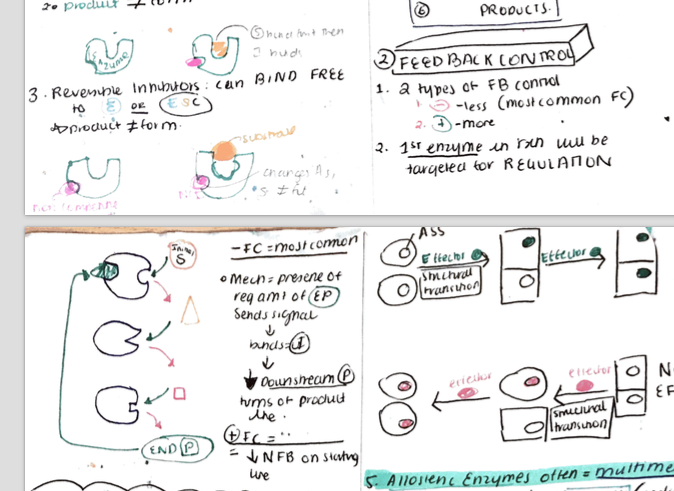 product ≠ form
Enzyme
⑤ must
3. Reversible Inhibitors: can BIND FREE
to E OR ESC
product ≠ form.
substrate
changes As,
S ≠ fit
⑥ PRODUCTS.
② FEEDBACK CONTROL
1. 2 types of FB control
1. ⊖ -less (most common FC)
2. ⊕ -more
2. 1st enzyme in rxn will be
targeted for REGULATION
Initial
S
END P
- FC = most common
Mech = presene of
req amt of EP
Sends signal
↓
binds =
↓
↓ Downstream P
turns of product
line.
⊕ FC =
= ↓ NFB on starting
line
Ass
Effector
structural
transition
Effector
effector
effector
structural
transition
N
EF
5. Allosteric Enzymes often = multime